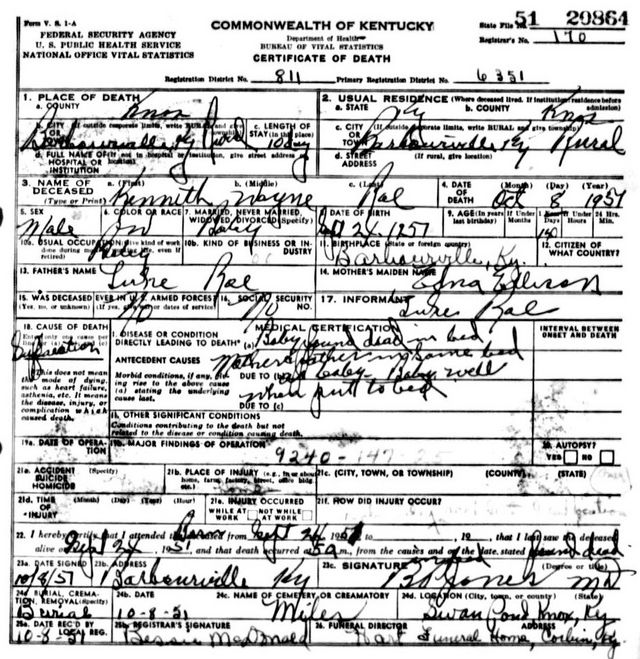 Form V. S. 1-A
COMMONWEALTH OF KENTUCKY
State File No. 51 20864
FEDERAL SECURITY AGENCY
Department of Health
Registrar's No. 170
U. S. PUBLIC HEALTH SERVICE
BUREAU OF VITAL STATISTICS
NATIONAL OFFICE VITAL STATISTICS
CERTIFICATE OF DEATH
Registration District No. 811 Primary Registration District No. 6351
1. PLACE OF DEATH
a. COUNTY Knox
2. USUAL RESIDENCE (Where deceased lived. If institution: residence before admission)
a. STATE Ky b. COUNTY Knox
b. CITY (If outside corporate limits, write RURAL and give
Barbourville, Ky Rural
c. LENGTH OF STAY (in this place)
c. CITY (If outside corporate limits, write RURAL and give township)
OR TOWN Barbourville, Ky Rural
d. FULL NAME OF (If not in hospital or institution, give street address
HOSPITAL OR INSTITUTION
d. STREET ADDRESS (If rural, give location)
3. NAME OF DECEASED (Type or Print)
a. (First) Kenneth b. (Middle) Wayne c. (Last)
4. DATE OF DEATH (Month) (Day) (Year) Oct 8 1951
5. SEX Male
6. COLOR OR RACE
7. MARRIED, NEVER MARRIED, WIDOWED, DIVORCED (Specify)
8. DATE OF BIRTH
9. AGE (In years last birthday) If Under 1 Year If Under 24 Hrs.
10a. USUAL OCCUPATION (Give kind of work done during most of even if retired)
10b. KIND OF BUSINESS OR INDUSTRY
11. BIRTHPLACE (State or foreign country)
Barbourville, Ky.
12. CITIZEN OF WHAT COUNTRY?
13. FATHER'S NAME
14. MOTHER'S MAIDEN NAME
Edna
15. WAS DECEASED EVER IN U. S. ARMED FORCES?
(Yes, no, or unknown) (If yes, give war or dates of service)
No
16. SOCIAL SECURITY NO.
No
17. INFORMANT
18. CAUSE OF DEATH
Enter only one cause per
Suffocation
MEDICAL CERTIFICATION
INTERVAL BETWEEN ONSET AND DEATH
I. DISEASE OR CONDITION DIRECTLY LEADING TO DEATH* (a) Baby found dead in bed
ANTECEDENT CAUSES Mother & father in same bed
Morbid conditions, if any, giving rise to the above cause (a) stating the underlying cause last.
DUE TO (b) baby. Baby well
when put to bed
DUE TO (c)
*This does not mean the mode of dying, such as heart failure, asthenia, etc. It means the disease, injury, or complication which caused death.
II. OTHER SIGNIFICANT CONDITIONS
Conditions contributing to the death but not related to the disease or condition causing death.
19a. DATE OF OPERATION
19b. MAJOR FINDINGS OF OPERATION
9240
20. AUTOPSY?
YES NO
21a. ACCIDENT (Specify) SUICIDE HOMICIDE
21b. PLACE OF INJURY (e.g., in or about home, farm, factory, street, office bldg. etc.)
21c. (CITY, TOWN, OR TOWNSHIP) (COUNTY) (STATE)
21d. TIME OF INJURY (Month) (Day) (Year) (Hour)
21e. INJURY OCCURRED
WHILE AT WORK NOT WHILE AT WORK
21f. HOW DID INJURY OCCUR?
22. I hereby certify that I attended the deceased from Sept 24 1951 to , 19 , that I last saw the deceased
alive on Sept 24 1951 and that death occurred at 5 a m., from the causes and on the date stated found dead.
23a. DATE SIGNED 10/8/51
23b. ADDRESS Barbourville Ky
23c. SIGNATURE Jones MD (Degree or title)
24a. BURIAL, CREMATION, REMOVAL (Specify) Burial
24b. DATE 10-8-51
24c. NAME OF CEMETERY OR CREMATORY Miles
24d. LOCATION (City, town, or county) (State)
Swan Pond Knox, Ky
25a. DATE REC'D BY LOCAL REG. 10-8-51
25b. REGISTRAR'S SIGNATURE Bessie McDonald
26. FUNERAL DIRECTOR ADDRESS
Hart Funeral Home, Corbin, Ky.